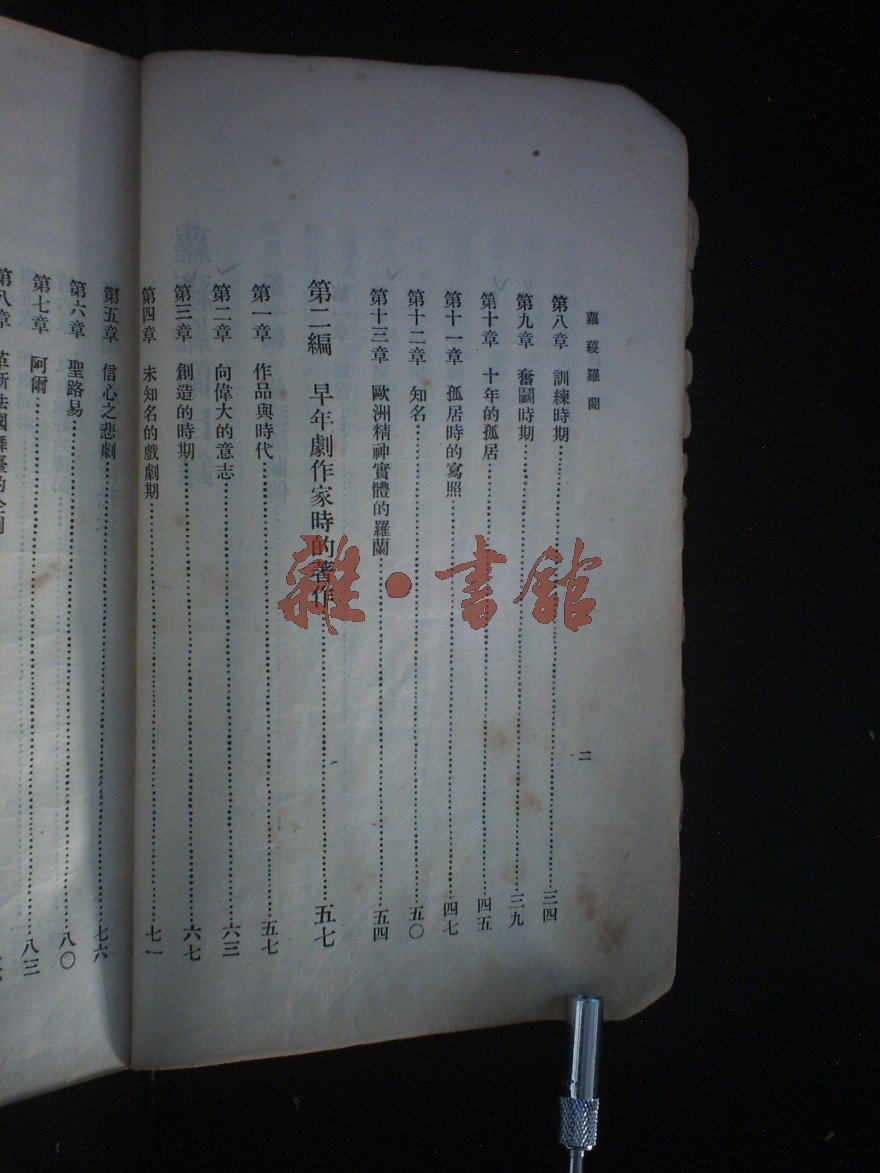 羅蔓羅蘭
二
第八章 訓練時期……三四
第九章 奮鬭時期……三九
第十章 十年的孤居……四五
第十一章 孤居時的寫照……四七
第十二章 知名……五〇
第十三章 歐洲精神實體的羅蘭……五四
第二編 早年劇作家時的著作……五七
第一章 作品與時代……五七
第二章 向偉大的意志……六三
第三章 創造的時期……六七
第四章 未知名的戲劇期……七一
第五章 信心之悲劇……七六
第六章 聖路易……八〇
第七章 阿爾……八三
第八章 革新法國舞臺的
雜·書館